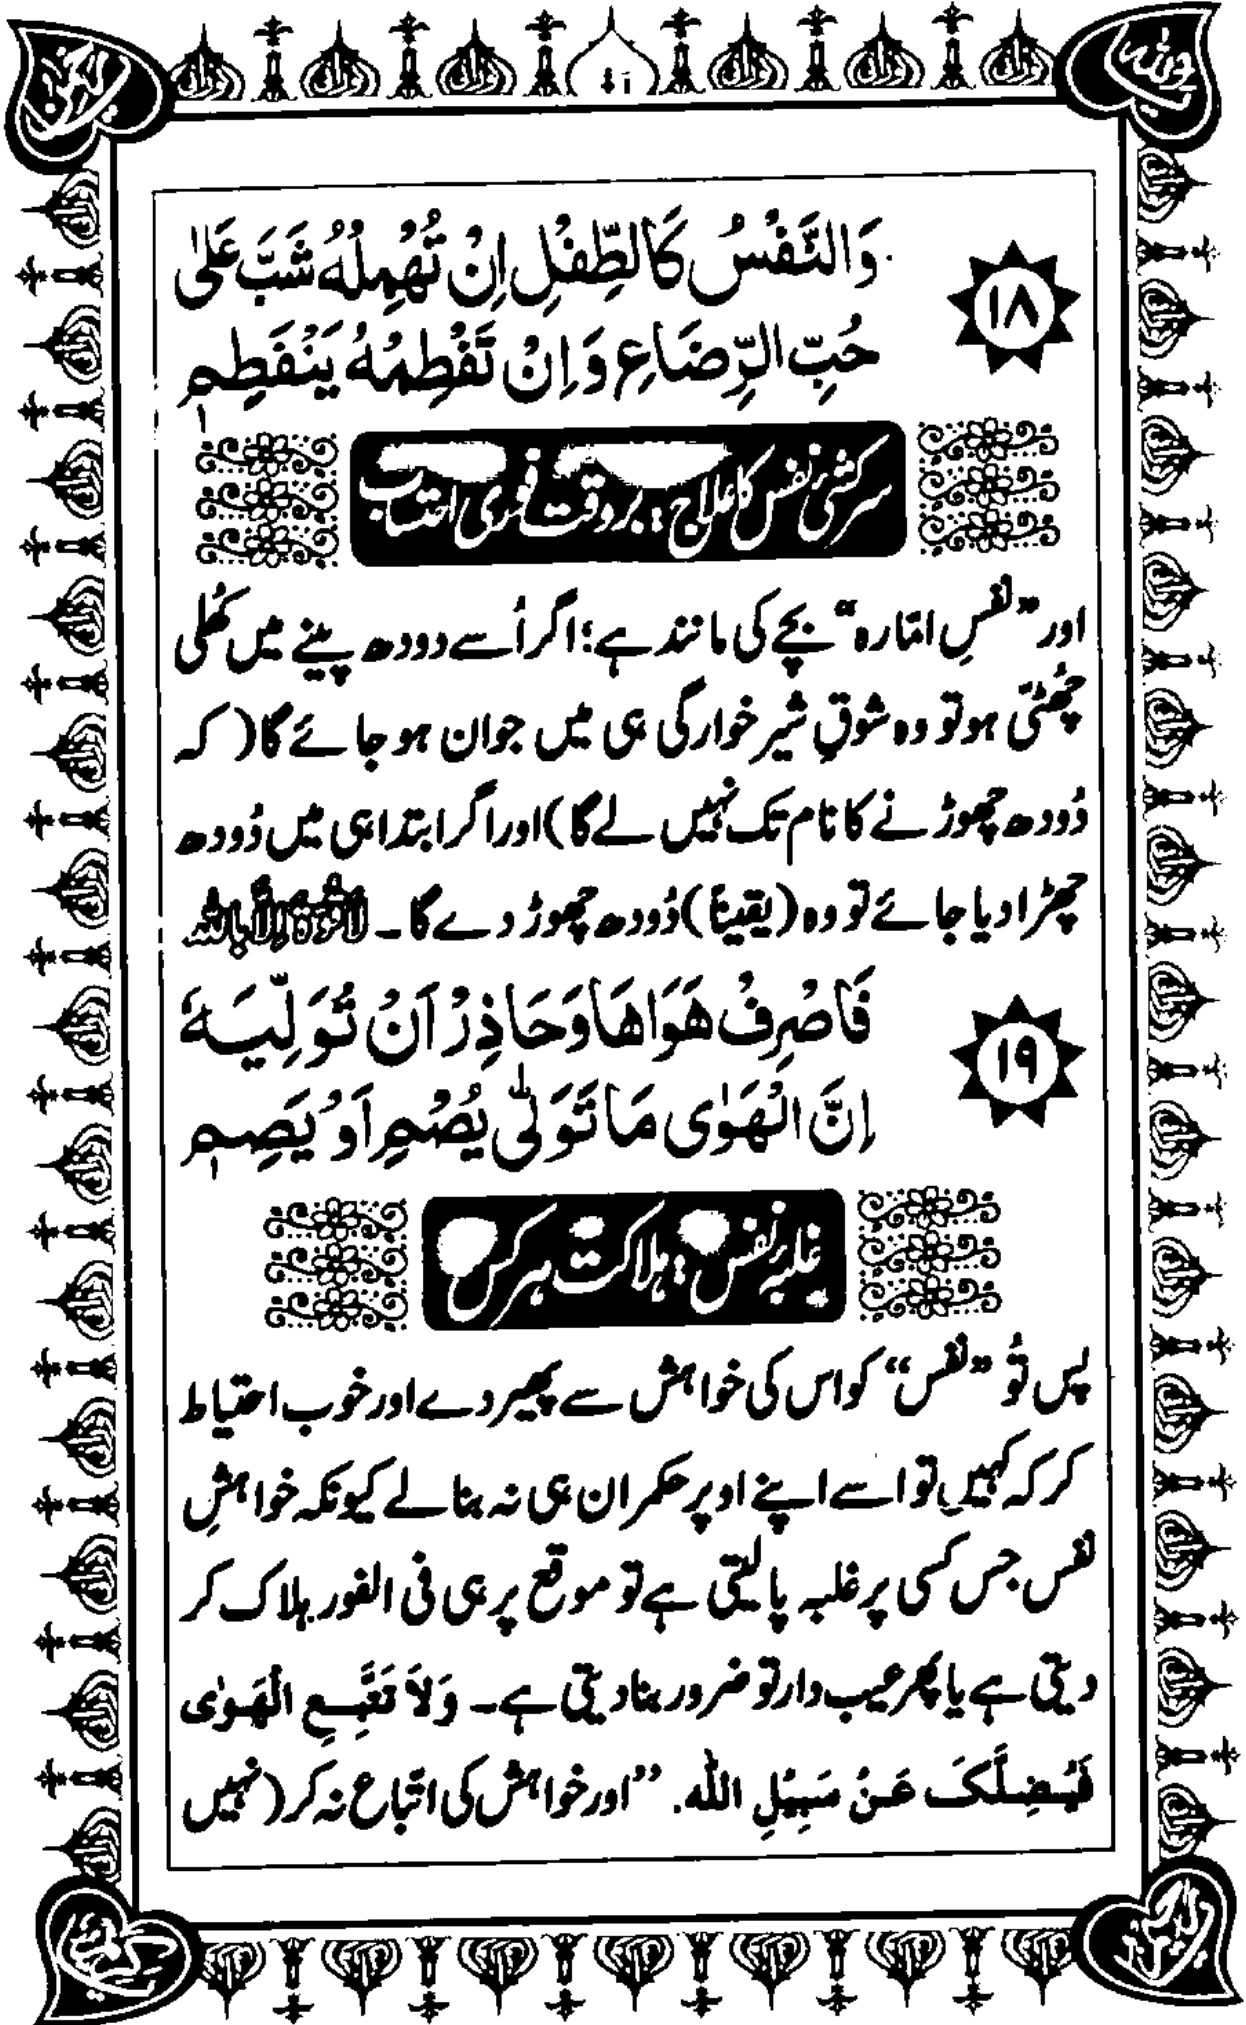 ١٨
وَالنَّفْسُ كَالطِّفْلِ اِنْ تُهْمِلْهُ شَبَّ عَلىٰ
حُبِّ الرِّضَاعِ وَاِنْ تَفْطِمْهُ يَنْفَطِمٖ
سرکشیٔ نفس کا علاج: بروقت فوری احتساب
اور ”نفسِ امّارہ“ بچے کی مانند ہے؛ اگر اُسے دودھ پینے میں کُھلی
چُھٹّی ہو تو وہ شوقِ شیر خوارگی ہی میں جوان ہو جائے گا (کہ
دُودھ چھوڑنے کا نام تک نہیں لے گا) اور اگر ابتدا ہی میں دُودھ
چھڑا دیا جائے تو وہ (یقیناً) دُودھ چھوڑ دے گا۔ لَاقُوَّةَ اِلَّا بِاللّٰهِ
١٩
فَاصْرِفْ هَوَاهَا وَحَاذِرْ اَنْ تُوَلِّيَهٗ
اِنَّ الْهَوٰى مَا تَوَلّٰى يُصْمِ اَوْ يَصِمٖ
غلبۂ نفس: ہلاکت ہر کس
پس تُو ”نفس“ کو اس کی خواہش سے پھیر دے اور خوب احتیاط
کر کہ کہیں تو اسے اپنے اوپر حکمران ہی نہ بنا لے کیونکہ خواہشِ
نفس جس کسی پر غلبہ پا لیتی ہے تو موقع پر ہی فی الفور ہلاک کر
دیتی ہے یا پھر عیب دار تو ضرور بنا دیتی ہے۔ وَلَا تَتَّبِعِ الْهَوٰى
فَيُضِلَّكَ عَنْ سَبِيْلِ الله. ”اور خواہش کی اتّباع نہ کر (نہیں